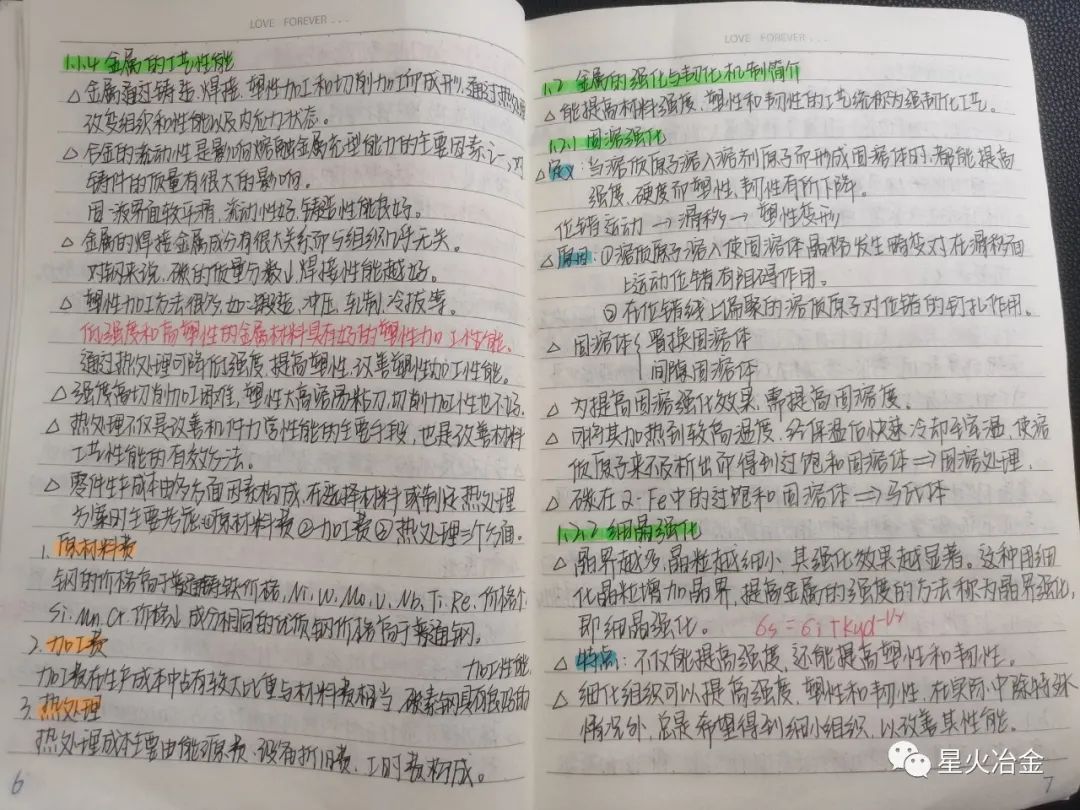 LOVE FOREVER...
1.1.4 金属的工艺性能
△ 金属通过铸造、焊接、塑性加工和切削加工而成形,通过热处理
改变组织和性能以及内应力状态。
△ 合金的流动性是影响熔融金属充型能力的主要因素之一,对
铸件的质量有很大的影响。
固-液界面较平滑,流动性好,铸造性能良好。
△ 金属的焊接金属成分有很大关系而与组织几乎无关。
对钢来说,碳的质量分数↓焊接性能越好。
△ 塑性加工方法很多,如:锻造、冲压、轧制、冷拔等。
低强度和高塑性的金属材料具有好的塑性加工性能。
通过热处理可降低强度,提高塑性,改善塑性加工性能。
△ 强度高切削加工困难,塑性大高温易粘刀,切削加工性也不好。
△ 热处理不仅是改善机件力学性能的主要手段,也是改善材料
工艺性能的有效方法。
△ 零件生产成本由多方面因素构成,在选择材料或制定热处理
方案时主要考虑①原材料费②加工费③热处理三个方面。
1. 原材料费
钢的价格高于普通铸铁价格,Ni、W、Mo、V、Nb、Ti、Re、价格↑
Si、Mn、Cr、价格↓ 成分相同的优质钢价格高于普通钢。
2. 加工费
加工性能
加工费在生产成本中占有较大比重与材料费相当,碳素钢具有良好的
3. 热处理
热处理成本主要由能源费、设备折旧费、工时费构成。
6
LOVE FOREVER...
1.2 金属的强化与韧化机制简介
△ 能提高材料强度、塑性和韧性的工艺统称为强韧化工艺。
1.2.1 固溶强化
△ 定义:当溶质原子溶入溶剂原子而形成固溶体时,都能提高
强度、硬度而塑性,韧性有所下降。
位错运动 → 滑移 → 塑性变形
△ 原因:①溶质原子溶入使固溶体晶格发生畸变对在滑移面
上运动位错有阻碍作用。
②在位错线上偏聚的溶质原子对位错的钉扎作用。
△ 固溶体{置换固溶体
间隙固溶体
△ 为提高固溶强化效果,需提高固溶度。
△ 可将其加热到较高温度,经保温后快速冷却至室温,使溶
质原子来不及析出而得到过饱和固溶体⟹固溶处理.
△ 碳在α-Fe中的过饱和固溶体⟹马氏体
1.2.2 细晶强化
△ 晶界越多,晶粒越细小,其强化效果越显著。这种用细
化晶粒增加晶界,提高金属的强度的方法称为晶界强化,
即细晶强化。 σs=σi+kyd^-1/2
△ 特点:不仅能提高强度,还能提高塑性和韧性。
△ 细化组织可以提高强度、塑性和韧性,在实际中除特殊
情况外,总是希望得到细小组织,以改善其性能。
7
星火冶金